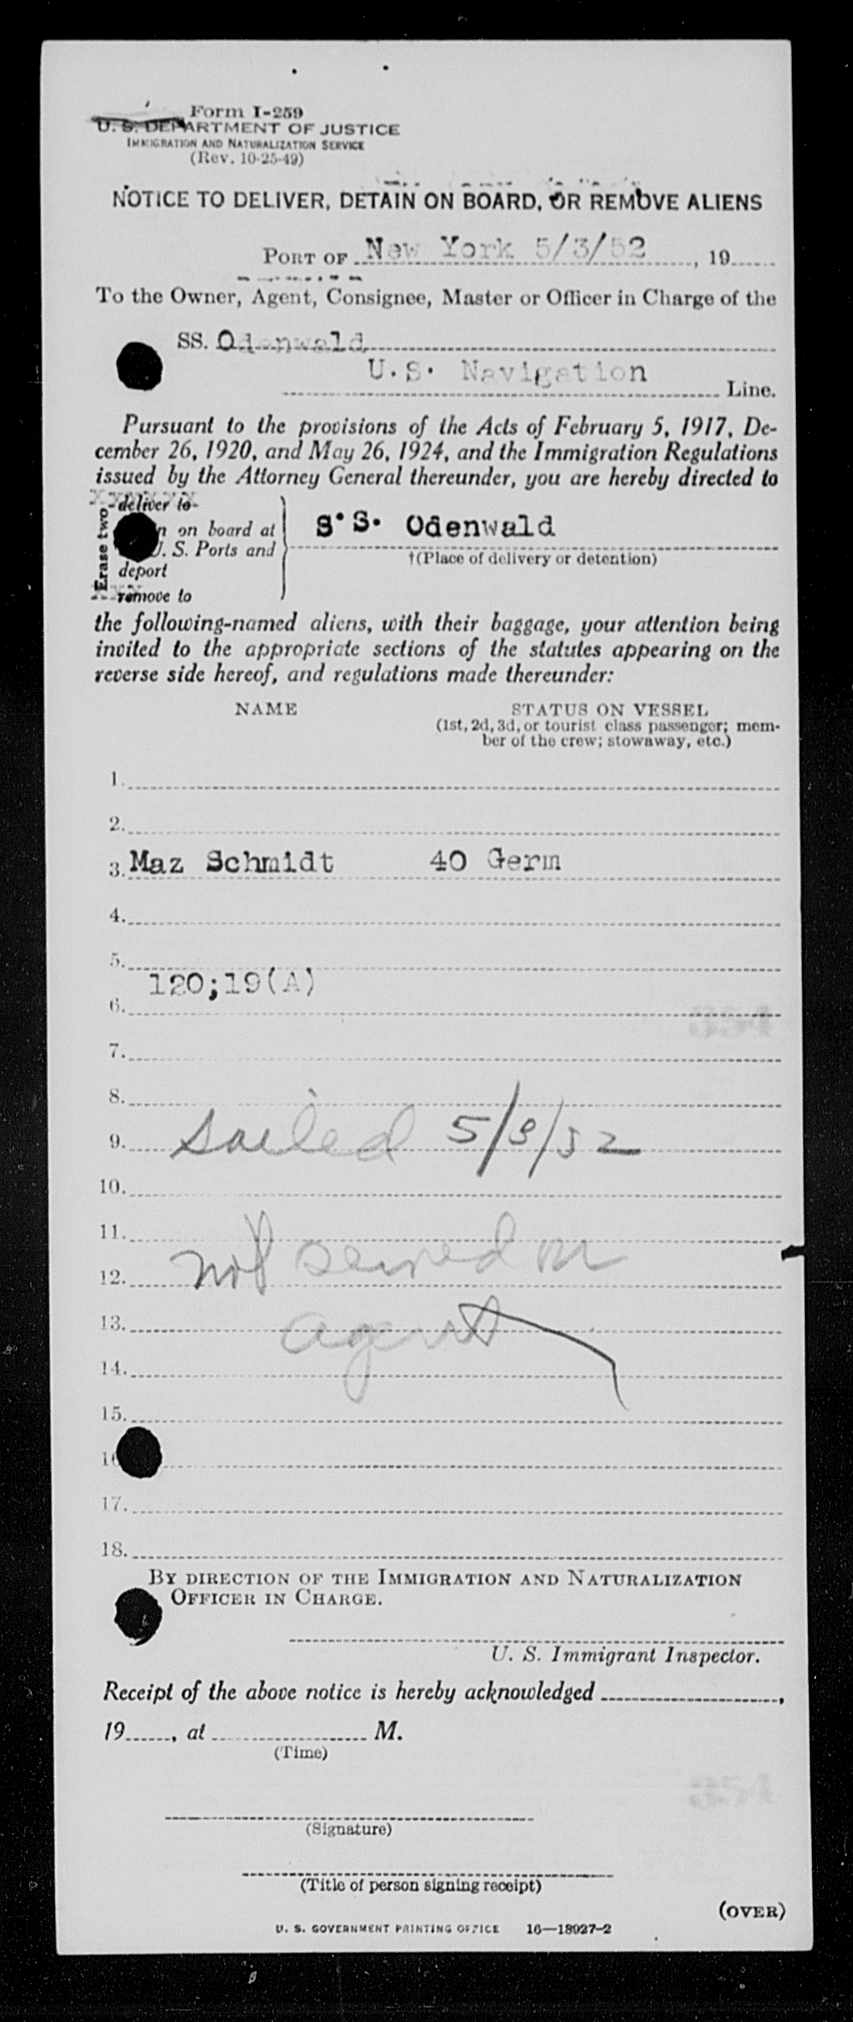 Form I-259
U. S. DEPARTMENT OF JUSTICE
IMMIGRATION AND NATURALIZATION SERVICE
(Rev. 10-25-49)
NOTICE TO DELIVER, DETAIN ON BOARD, OR REMOVE ALIENS
PORT OF New York 5/3/52, 19
To the Owner, Agent, Consignee, Master or Officer in Charge of the
SS. Odenwald
U.S. Navigation
Line.
Pursuant to the provisions of the Acts of February 5, 1917, De-
cember 26, 1920, and May 26, 1924, and the Immigration Regulations
issued by the Attorney General thereunder, you are hereby directed to
Erase two
deliver to
on board at
U. S. Ports and
deport
remove to
S.S. Odenwald
†(Place of delivery or detention)
the following-named aliens, with their baggage, your attention being
invited to the appropriate sections of the statutes appearing on the
reverse side hereof, and regulations made thereunder:
NAME STATUS ON VESSEL
(1st, 2d, 3d, or tourist class passenger; mem-
ber of the crew; stowaway, etc.)
1.
2.
3. Maz Schmidt 40 Germ
4.
5.
120;19(A)
6.
7.
8.
9. Sailed 5/3/52
10.
11.
12. not served on
13. agent
14.
15.
16
17.
18.
BY DIRECTION OF THE IMMIGRATION AND NATURALIZATION
OFFICER IN CHARGE.
U. S. Immigrant Inspector.
Receipt of the above notice is hereby acknowledged ,
19 , at M.
(Time)
(Signature)
(Title of person signing receipt)
(OVER)
U. S. GOVERNMENT PRINTING OFFICE 16—18927-2